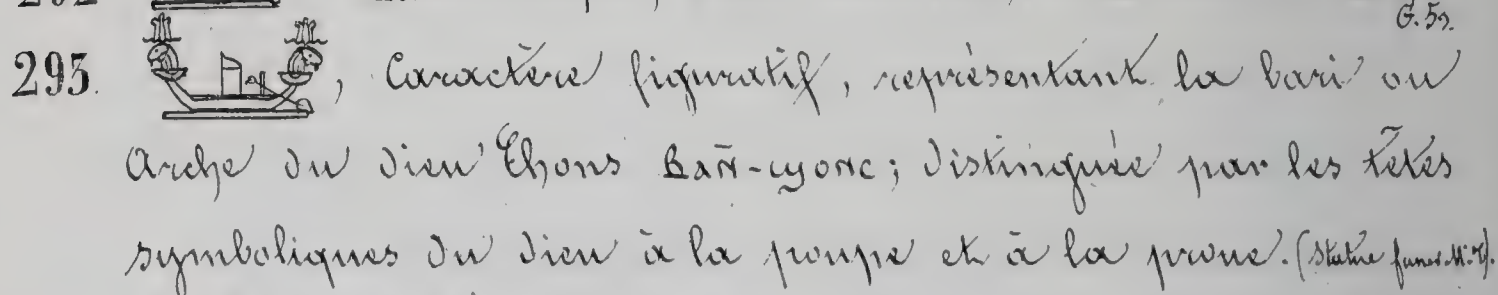 G. 59.
295. , Caractère figuratif, représentant la bari ou
Arche du dieu Chons ⲃⲁⲛ̄-ϣⲟⲛⲥ; distinguée par les têtes
symboliques du dieu à la poupe et à la proue. (Statue funér. M. T).